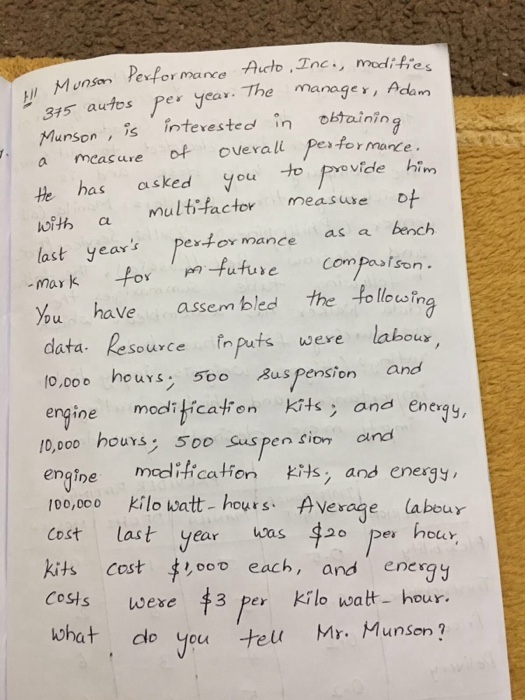 Munson Performance Auto, Inc., modifies
375 autos per year. The manager, Adam
Munson, is interested in obtaining
a measure of overall performance.
He has asked you to provide him
with a multifactor measure of
last year's performance as a bench
-mark for future comparison.
You have assembled the following
data. Resource inputs were labour,
10,000 hours; 500 suspension and
engine modification kits; and energy,
10,000 hours; 500 suspension and
engine modification kits; and energy,
100,000 kilo watt-hours. Average labour
cost last year was $20 per hour,
kits cost $1,000 each, and energy
costs were $3 per kilo watt-hour.
what do you tell Mr. Munson?